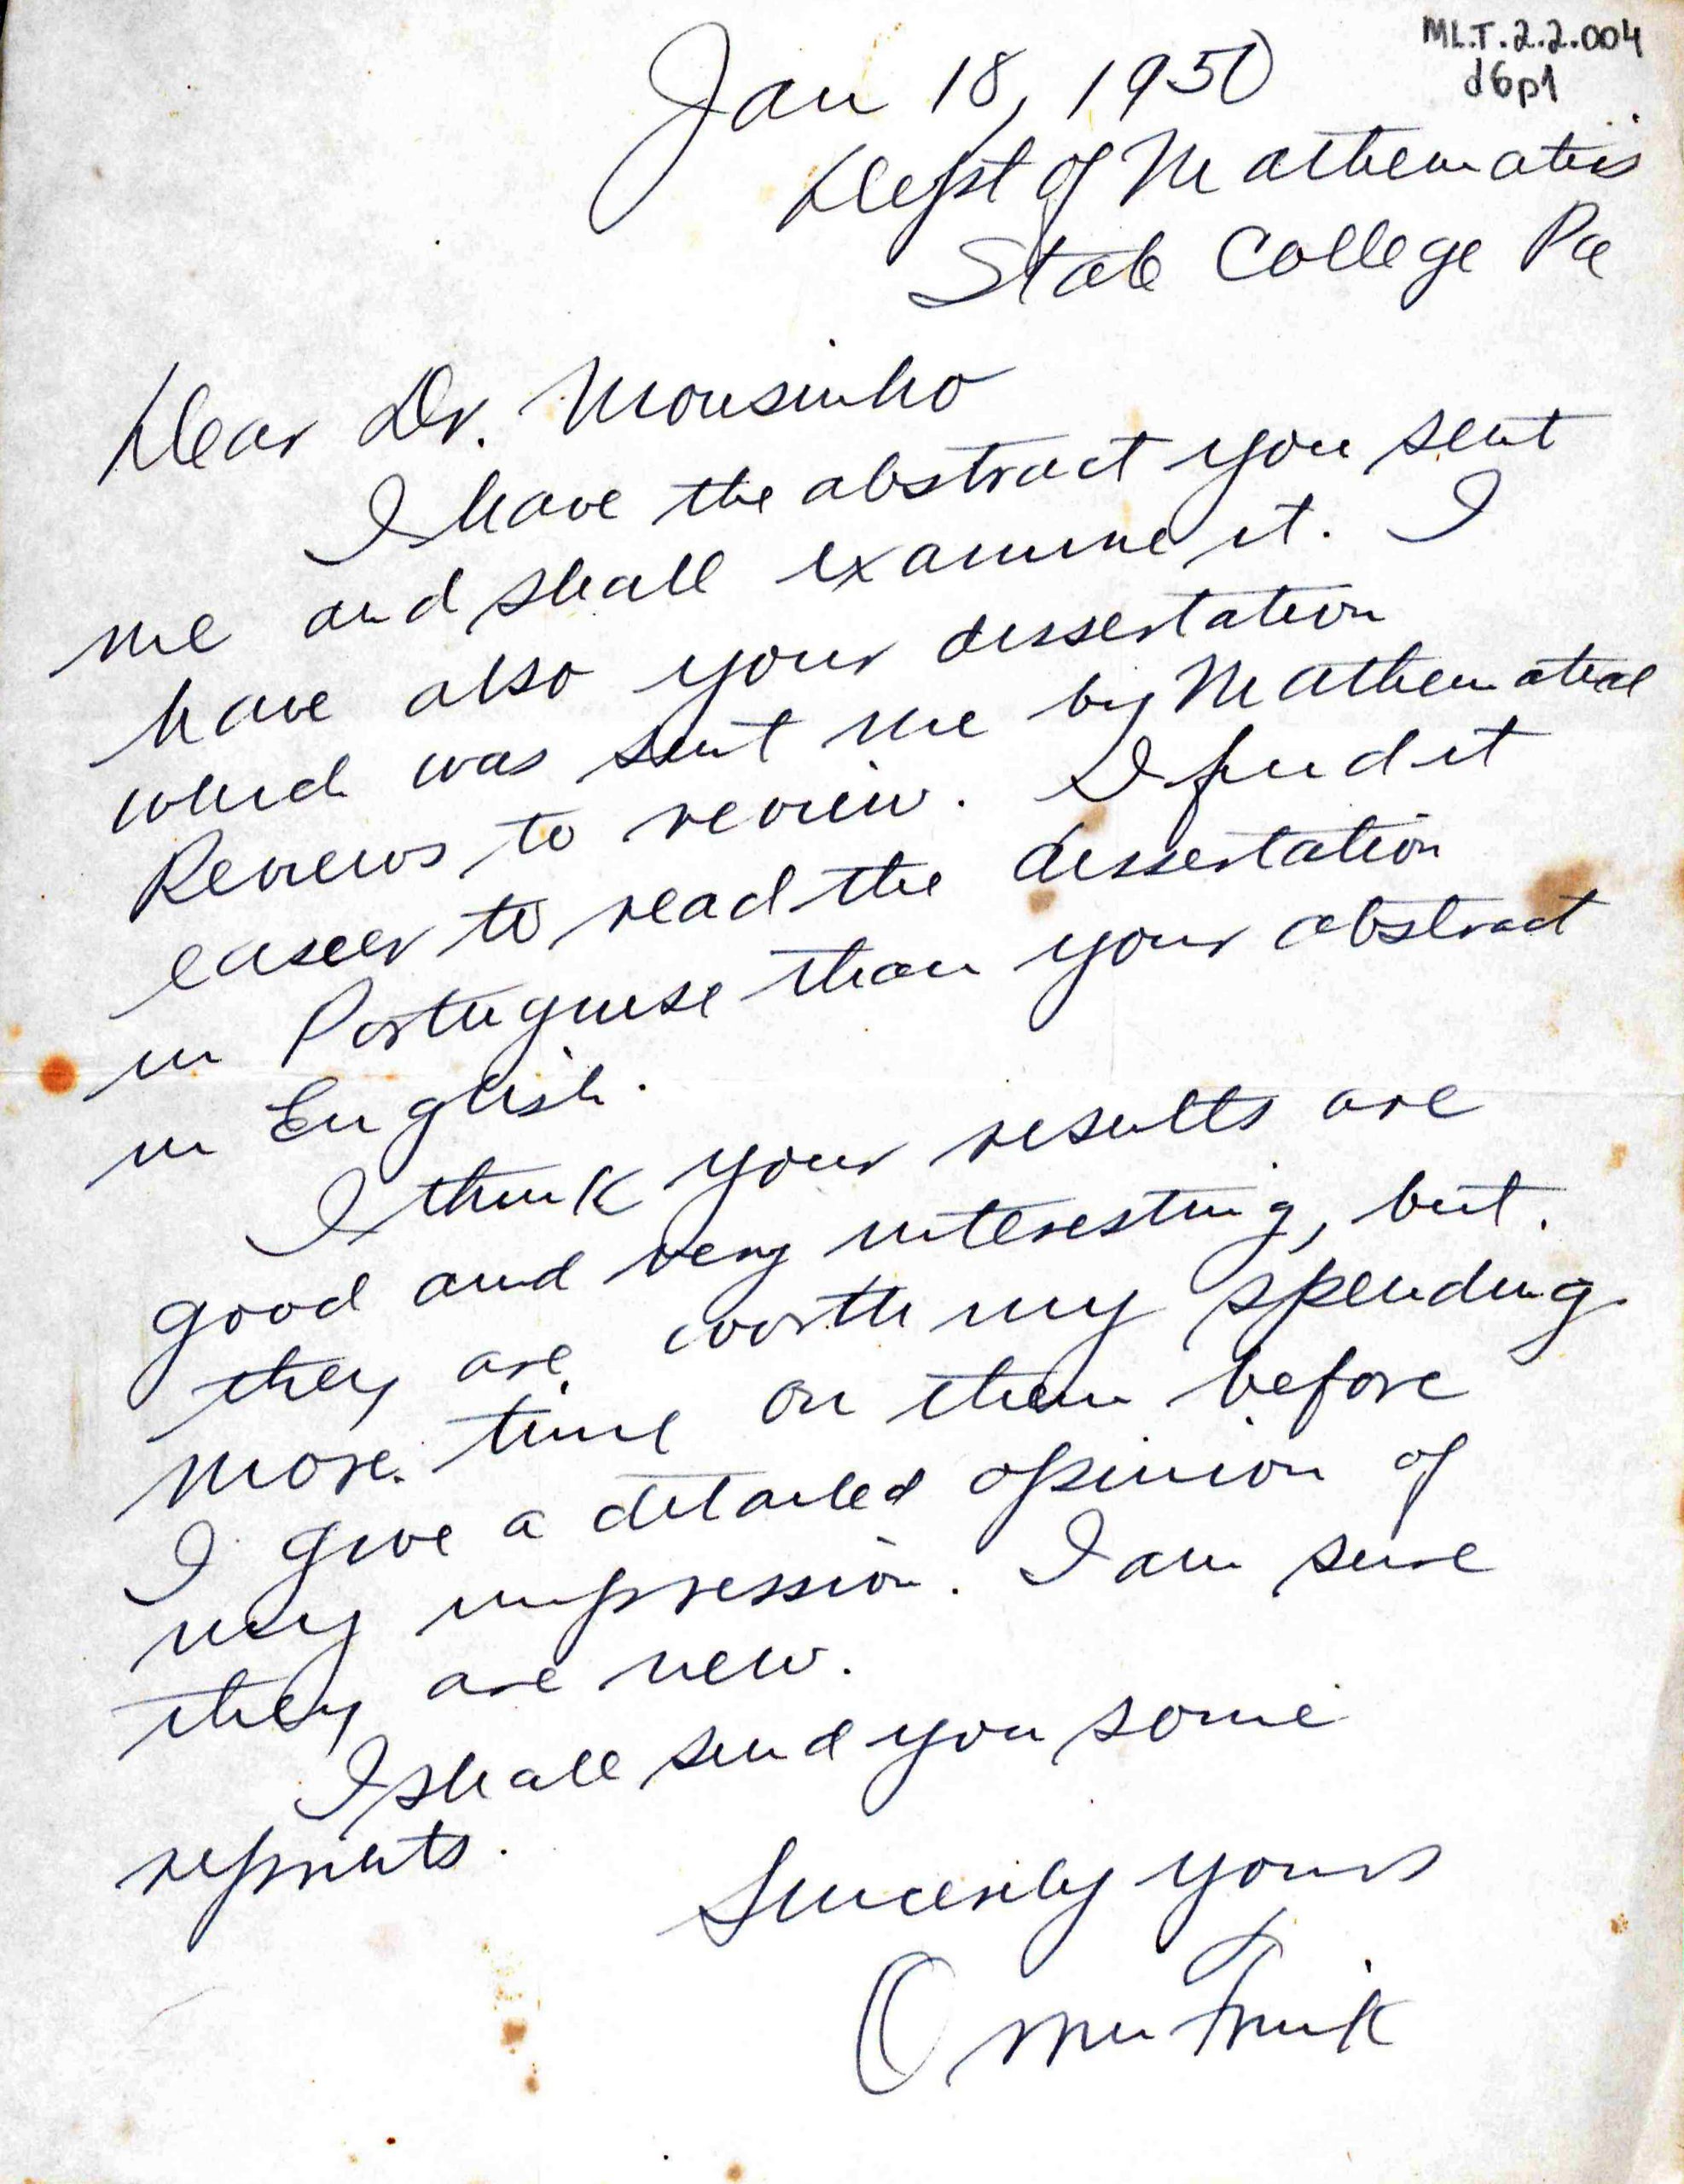 ML.T.2.2.004
d6p1
Jan 18, 1950
Dept of Mathematics
State College Pa
Dear Dr. Mousinho
I have the abstract you sent
me and shall examine it. I
have also your dissertation
which was sent me by Mathematical
Reviews to review. I find it
easier to read the dissertation
in Portuguese than your abstract
in English.
I think your results are
good and very interesting, but
they are worth my spending
more time on them before
I give a detailed opinion of
my impression. I am sure
they are new.
I shall send you some
reprints.
Sincerely yours
Orrin Frink